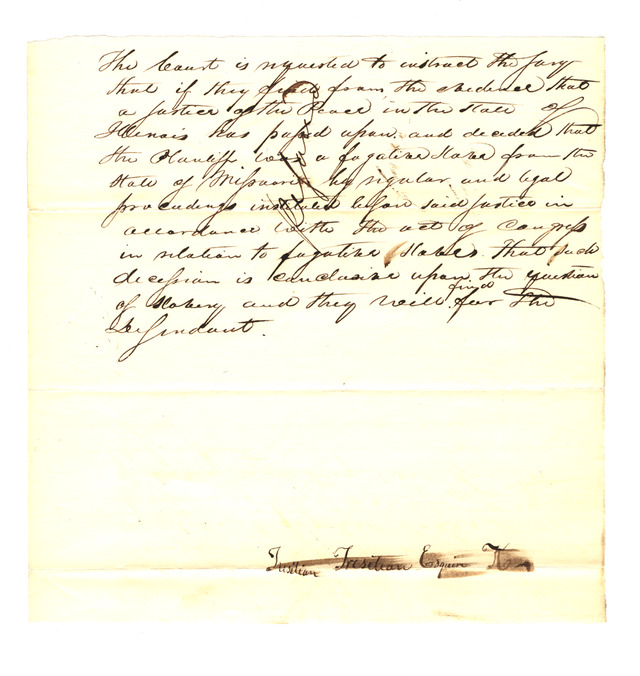 The Court is requested to instruct the Jury
that if they find from the evidence that
a Justice of the Peace in the State of
Illinois has passed upon and decided that
the Plantiff was a fugative Slave from the
State of Missouri by rigular and legal
proceedings instituted before said Justice in
accordance with the act of Congress
in relation to fugative Slaves. That such
decission is conclusive upon the question
of Slavery and they will find for the
Defendant.
Esquire